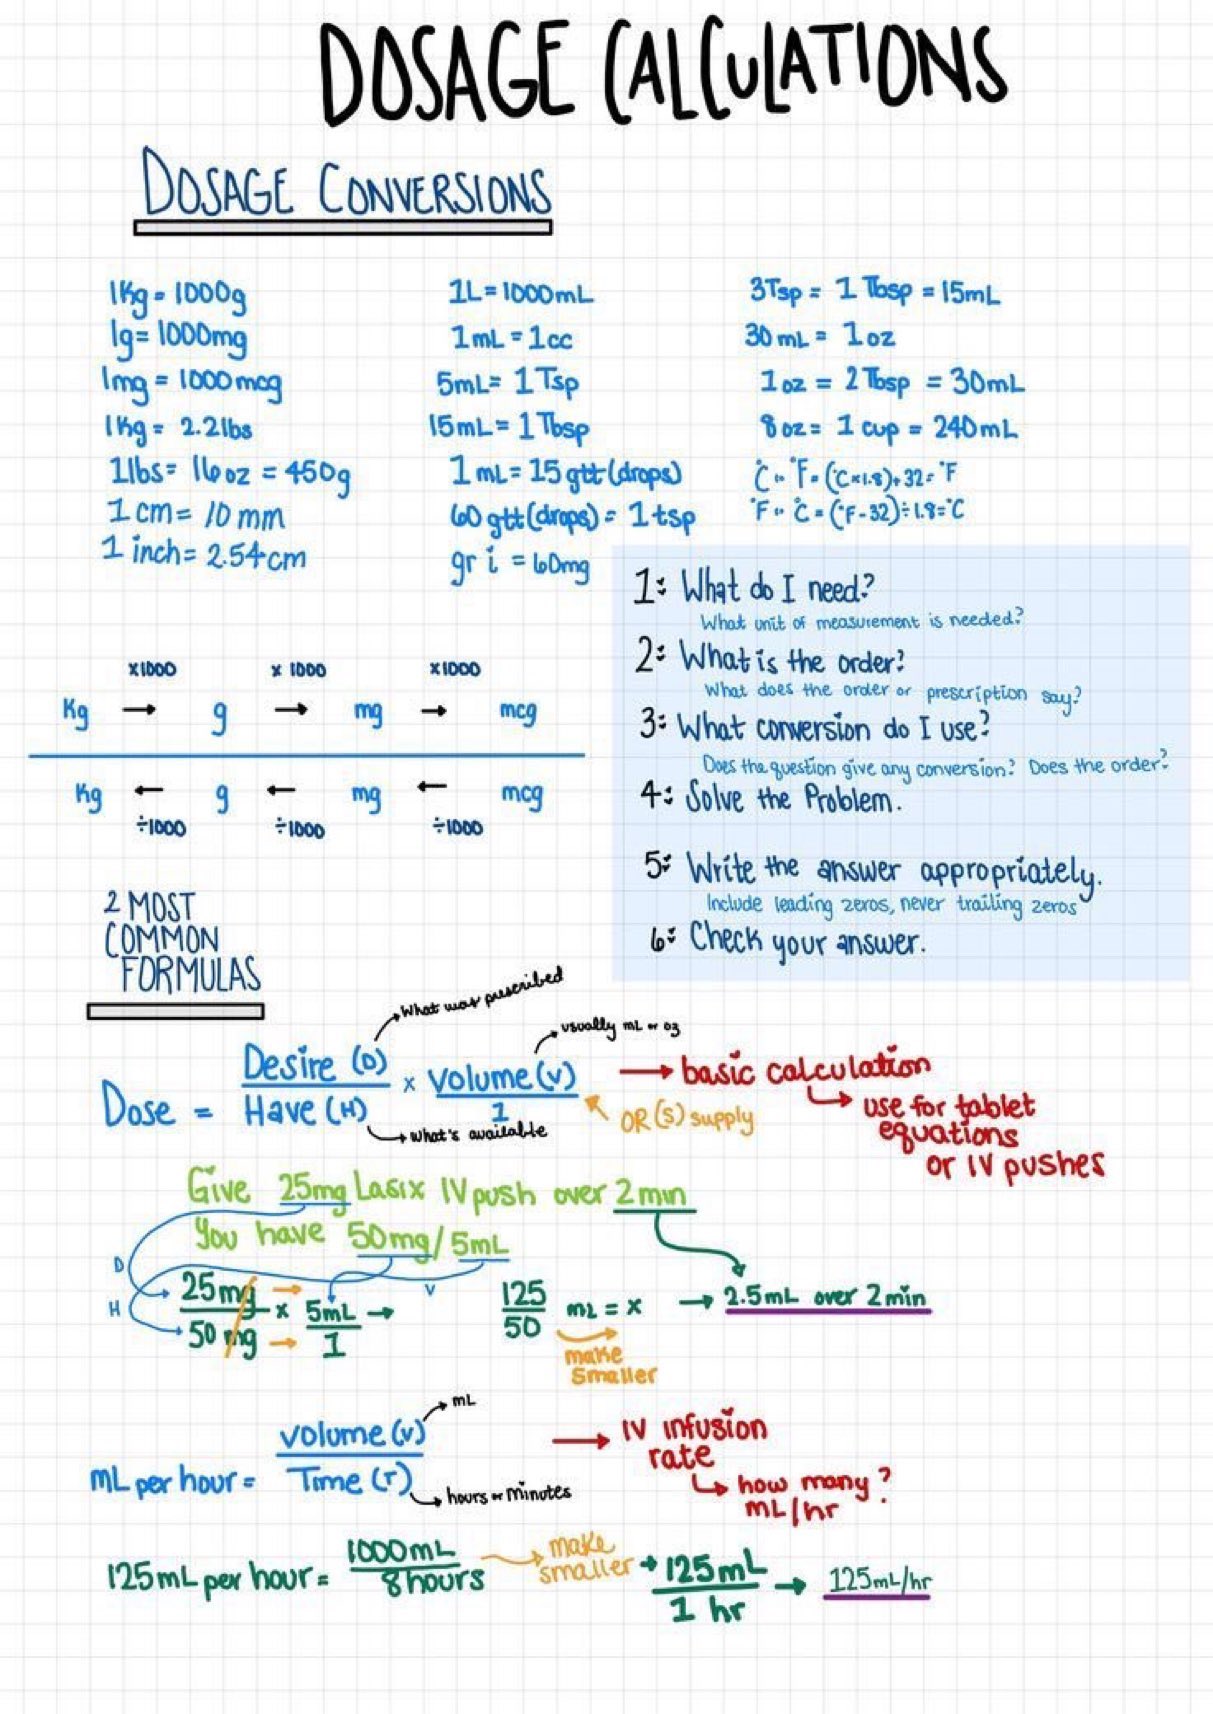 DOSAGE CALCULATIONS
DOSAGE CONVERSIONS
1Kg = 1000g
1g = 1000mg
1mg = 1000mcg
1Kg = 2.2lbs
1lbs = 16oz = 450g
1cm = 10mm
1 inch = 2.54cm
1L = 1000mL
1mL = 1cc
5mL = 1 Tsp
15mL = 1 Tbsp
1mL = 15 gtt (drops)
60 gtt (drops) = 1 tsp
gr i = 60mg
3Tsp = 1 Tbsp = 15mL
30mL = 1oz
1oz = 2 Tbsp = 30mL
8oz = 1 cup = 240mL
°C °F = (°C×1.8)+32=°F
°F °C = (°F-32)÷1.8=°C
x1000 x 1000 x1000
Kg → g → mg → mcg
Kg ← g ← mg ← mcg
÷1000 ÷1000 ÷1000
1: What do I need?
What unit of measurement is needed?
2: What is the order?
What does the order or prescription say?
3: What conversion do I use?
Does the question give any conversion? Does the order?
4: Solve the Problem.
5: Write the answer appropriately.
Include leading zeros, never trailing zeros
6: Check your answer.
2 MOST
COMMON
FORMULAS
What was prescribed
usually mL or oz
Dose = Desire (D) / Have (H) x Volume (V) / 1
What's available
OR (S) supply
→ basic calculation
use for tablet
equations
or IV pushes
Give 25mg Lasix IV push over 2 min
You have 50mg/5mL
D
H
V
25mg / 50mg x 5mL / 1 → 125 / 50 mL = x → 2.5mL over 2 min
make
smaller
mL
mL per hour = Volume (V) / Time (T)
hours or minutes
→ IV infusion
rate
how many?
mL/hr
125mL per hour = 1000mL / 8 hours
make
smaller
→ 125mL / 1 hr → 125mL/hr